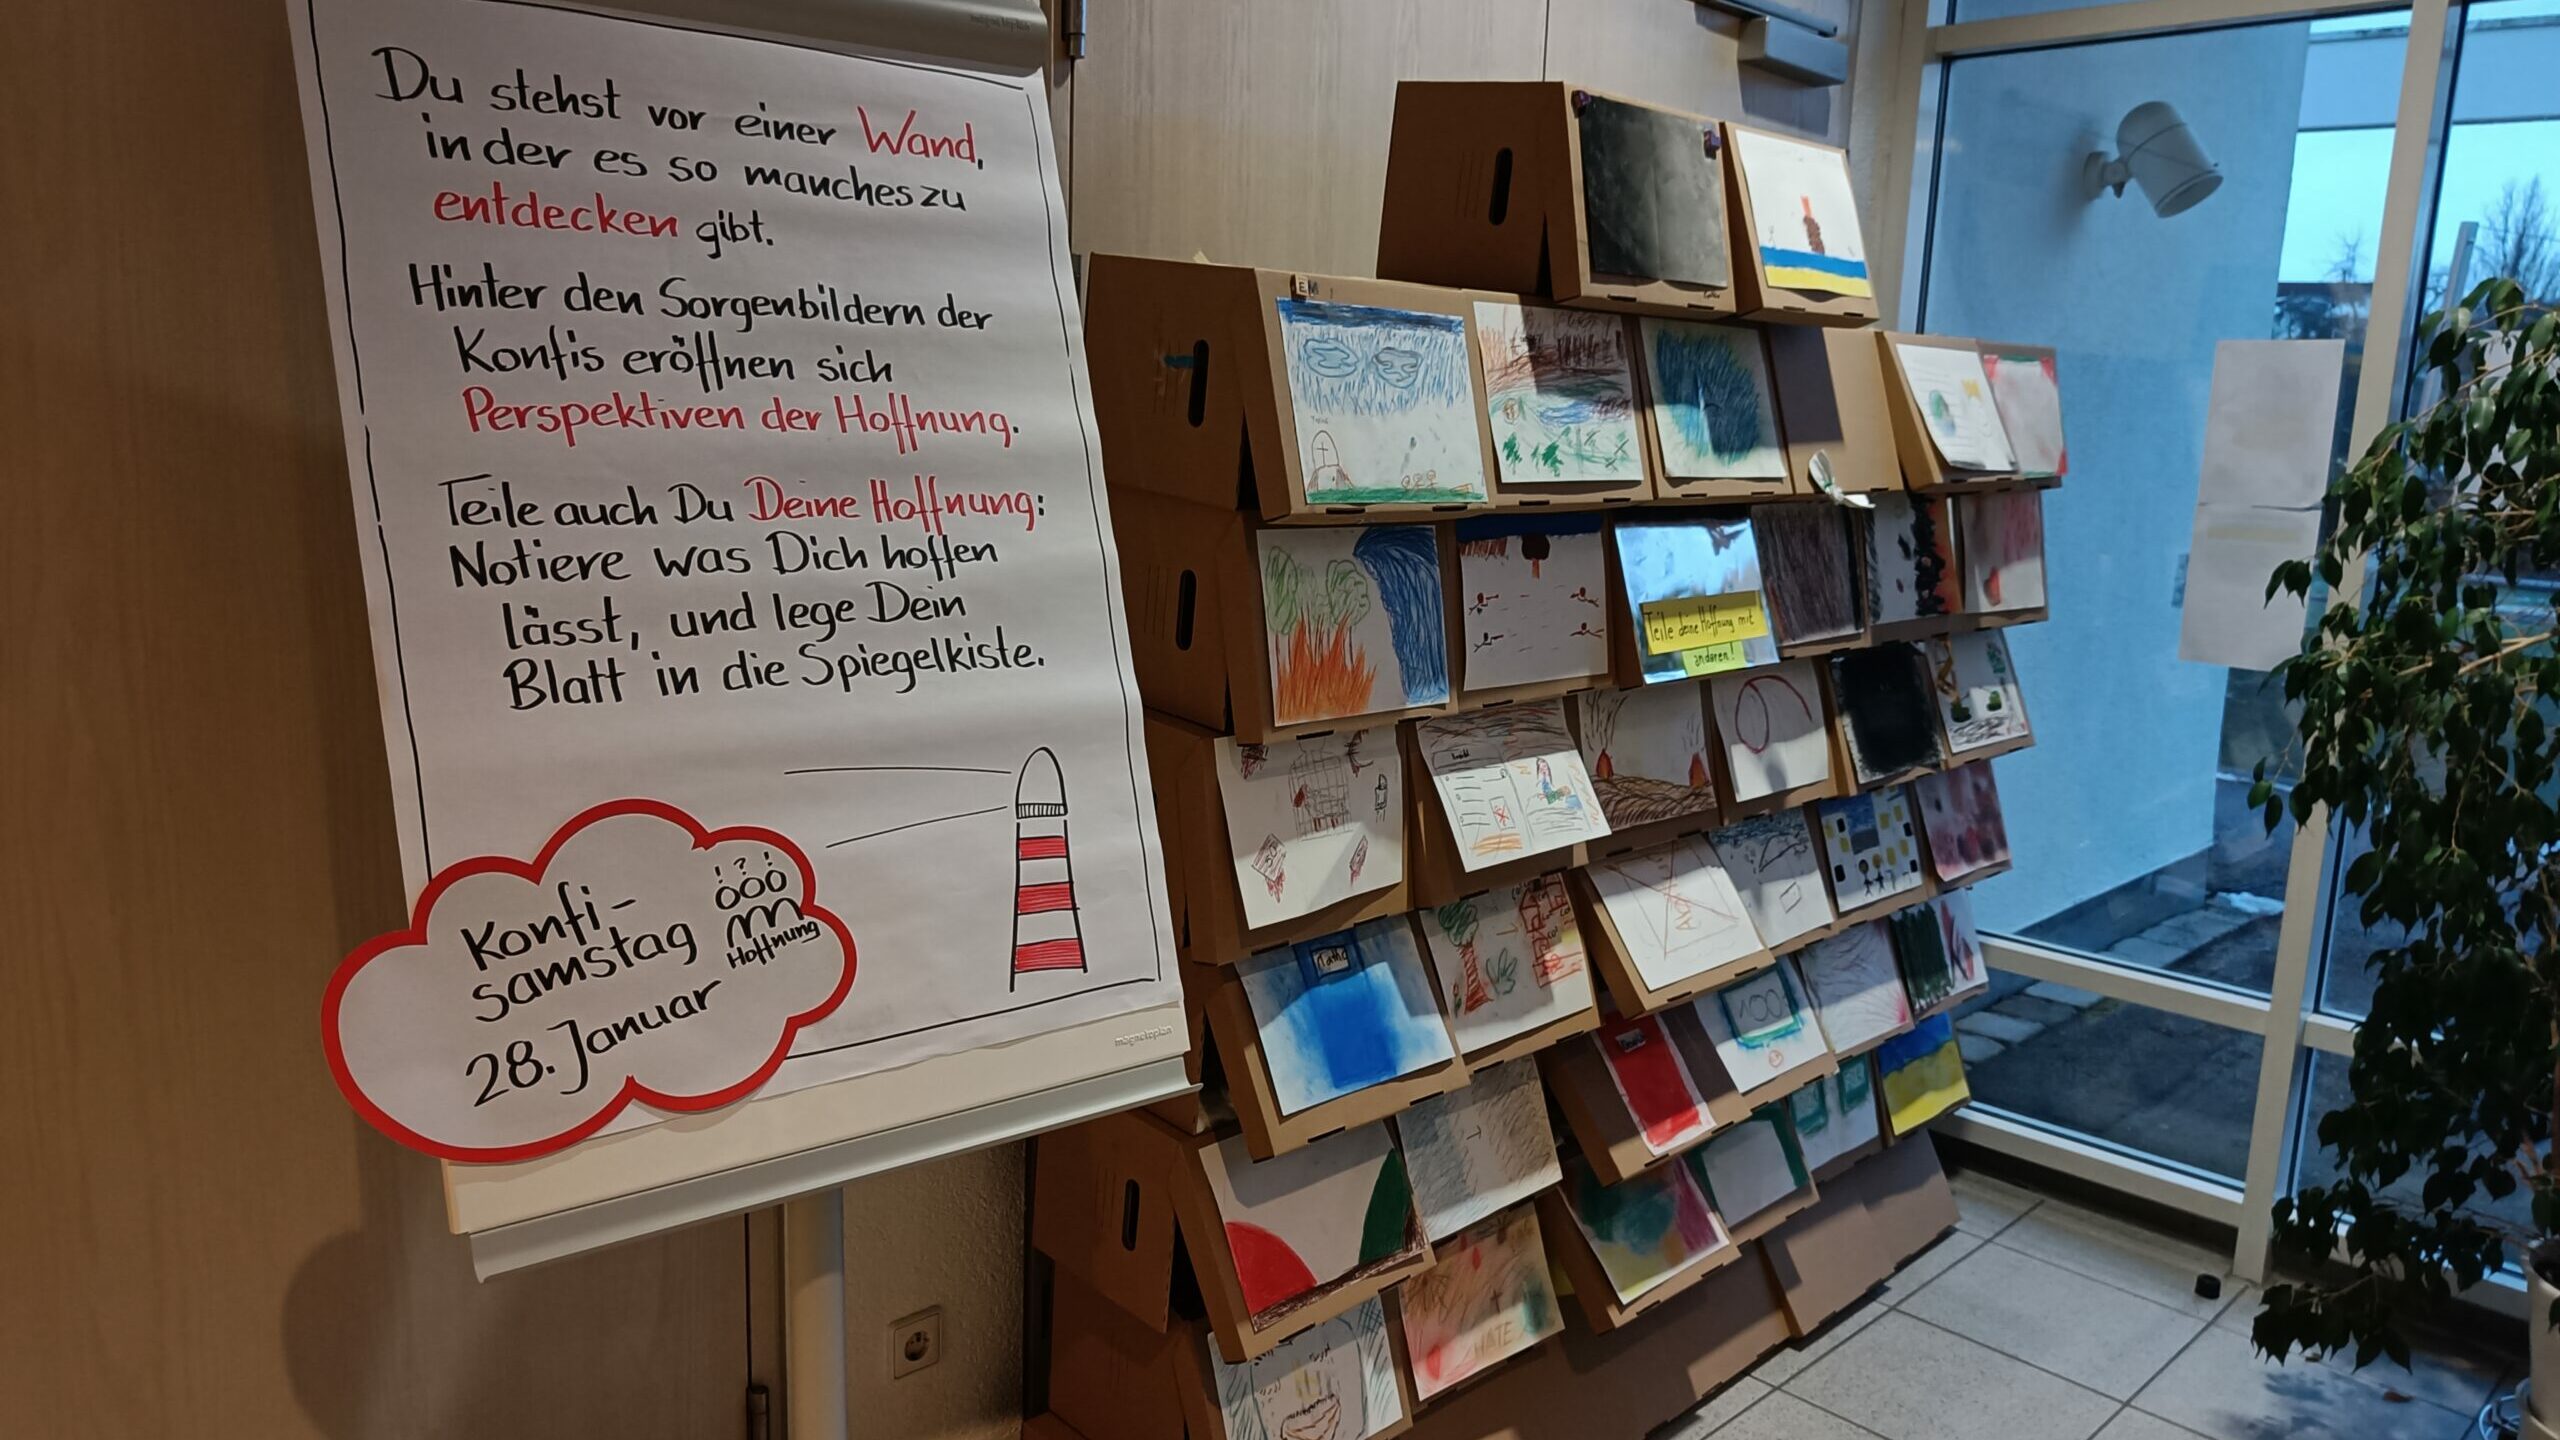 magnetoplan
Du stehst vor einer Wand,
in der es so manches zu
entdecken gibt.
Hinter den Sorgenbildern der
Konfis eröffnen sich
Perspektiven der Hoffnung.
Teile auch Du Deine Hoffnung:
Notiere was Dich hoffen
lässt, und lege Dein
Blatt in die Spiegelkiste.
Konfi-
samstag
28. Januar
! ? !
Hoffnung
magnetoplan
Teile deine Hoffnung mit
anderen!
Mathe
100
HATE